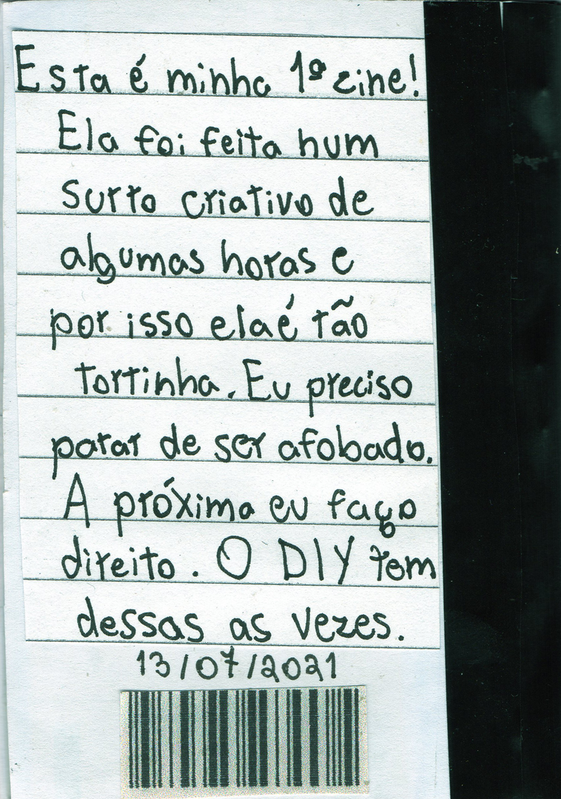 Esta é minha 1º zine!
Ela foi feita num
surto criativo de
algumas horas e
por isso ela é tão
tortinha. Eu preciso
parar de ser afobado.
A próxima eu faço
direito. O DIY tem
dessas as vezes.
13/07/2021